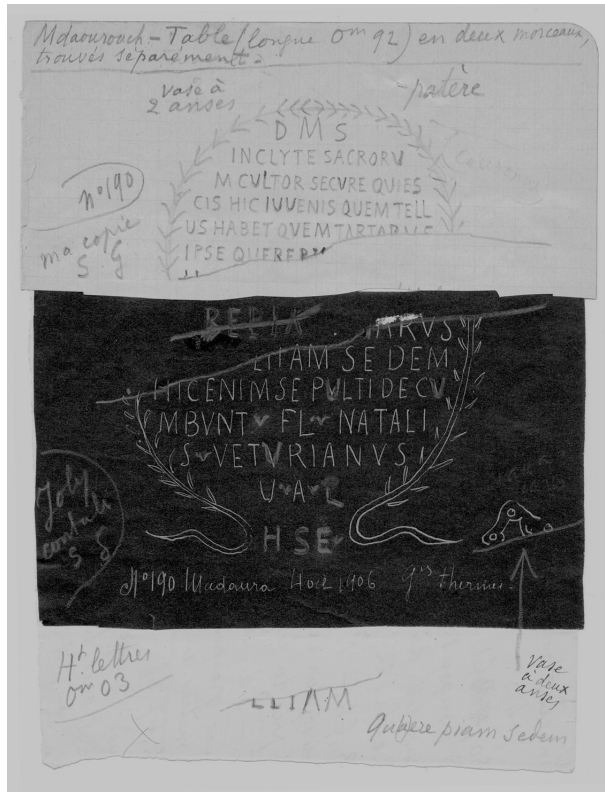 Mdaourouch - Table (longue 0m 92) en deux morceaux,
trouvés séparément.
vase à
2 anses
patère
D M S
INCLYTE SACRORV
M CVLTOR SECVRE QVIES
CIS HIC IVVENIS QVEM TELL
US HABET QVEM TARTARVS
IPSE QVERER
N° 190
ma copie
S G
ARVS
LITAM SE DEM
HIC ENIM SE PVLTI DE CV
MBVNT FL NATALI
S VETVRIANVS
V A L
H S E
Joly
S G
N° 190 Madaura Août 1906 Gds thermes.
Ht lettres
0m 03
LLIAM
vase
à deux
anses
Quaere piam sedem